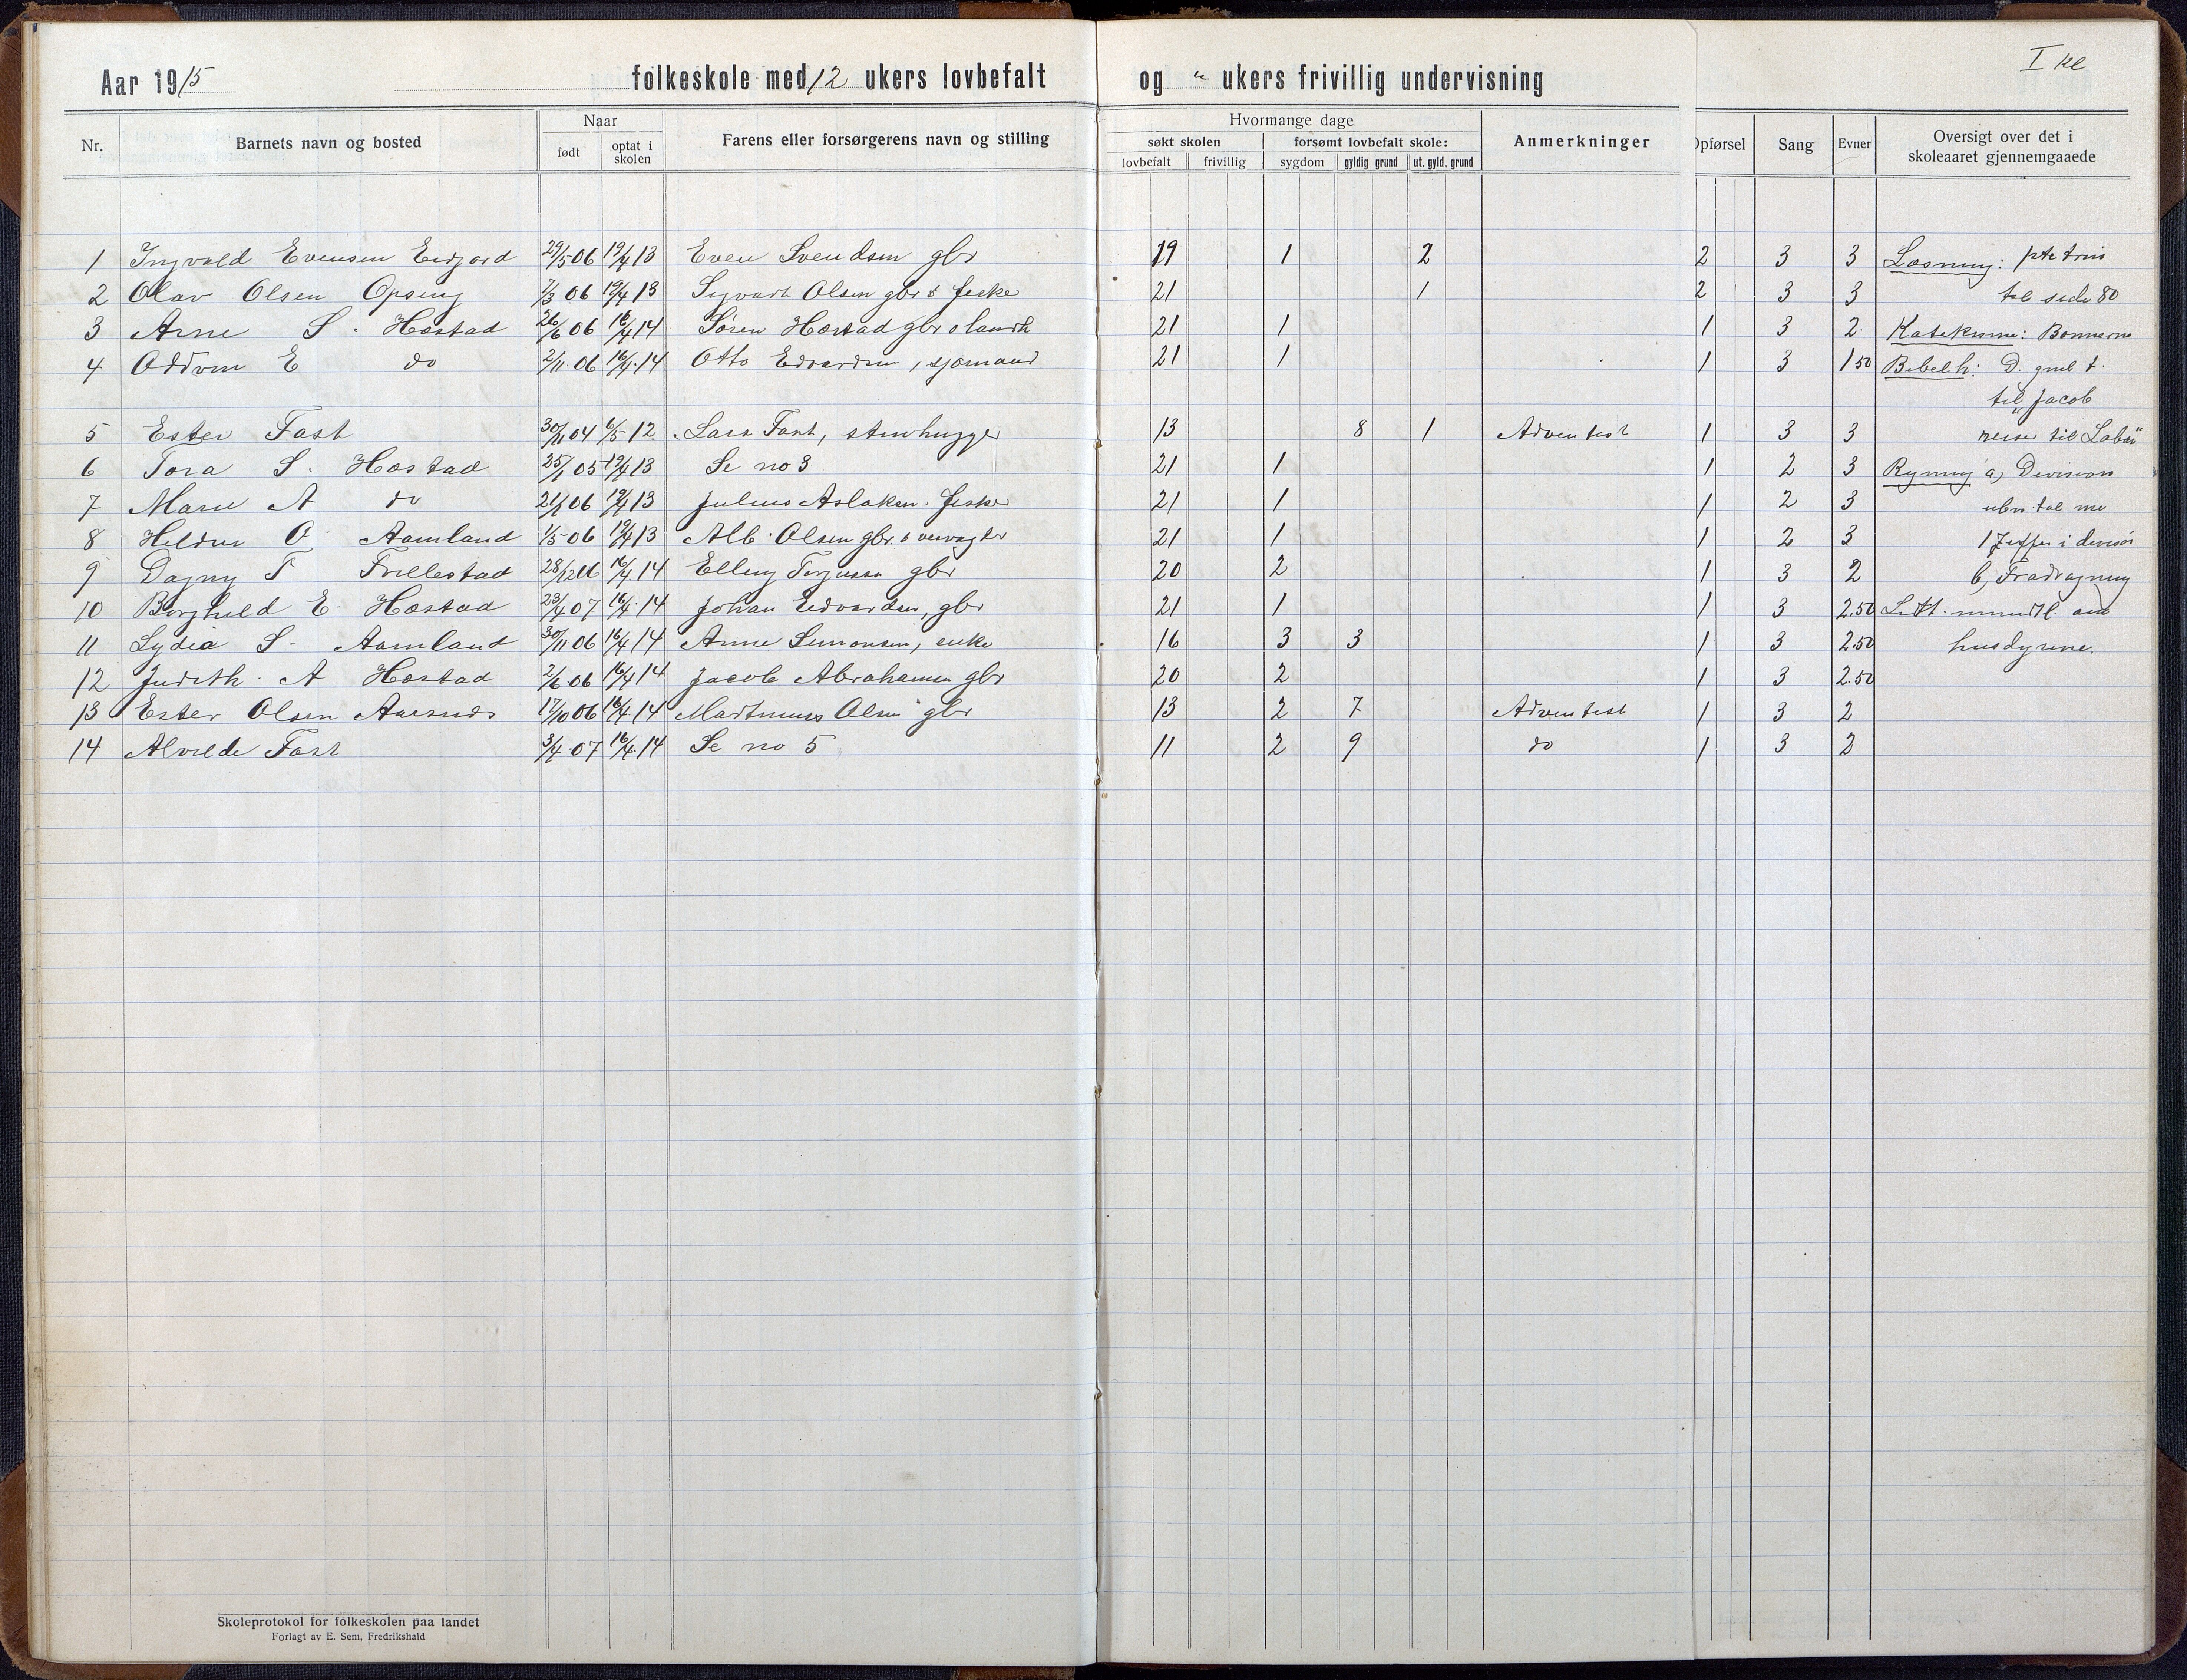 I kl
Aar 1915 folkeskole med 12 ukers lovbefalt og " ukers frivillig undervisning
Nr. Barnets navn og bosted Naar født optat i skolen Farens eller forsørgerens navn og stilling Hvormange dage søkt skolen lovbefalt frivillig forsømt lovbefalt skole: sygdom gyldig grund ut. gyld. grund Anmerkninger Opførsel Sang Evner Oversigt over det i skoleaaret gjennemgaaede
1 Ingvald Evensen 29/5 06 19/4 13 Even Svendsen gbr 19 1 2 2 3 3 Læsning: trin
2 Olav Olsen Opseng 7/3 06 19/4 13 Sigvart Olsen gbr & fisker 21 1 2 3 3 til side 80
3 Arne S. Hæstad 26/6 06 16/4 14 Søren Hæstad gbr o landh 21 1 1 3 2 Katekisme: Bønnerne
4 Oddvin E do 2/11 06 16/4 14 Otto Edvardsen, sjømand 21 1 1 3 1.50 Bibelh: D. gml t.
til Jacob
5 Ester Fast 30/11 04 6/5 12 Lars Fast, stenhugger 13 8 1 Adventist 1 3 3 reiser til Laban"
6 Tora S. Hæstad 25/1 05 19/4 13 Se no 3 21 1 1 2 3 Regning a) Division
7 Marie A do 21/1 06 19/4 13 Julius Aslaksen fisker 21 1 1 2 3 uben. tal me
8 O. Aamland 1/5 06 19/4 13 Alb. Olsen gbr. & veivogter 21 1 1 2 3 1 ziffer i divisor
9 Dagny T Trellestad 28/12 06 16/4 14 Elling Terjussen gbr 20 2 1 3 2 b) Fradragning
10 Borghild E. Hæstad 23/4 07 16/4 14 Johan Edvardsen, gbr 21 1 1 3 2.50 Litt mundtl. om
11 Lydia S. Aamland 30/11 06 16/4 14 Anne Simonsen, enke 16 3 3 1 3 2.50 husdyrene.
12 Judith A Hæstad 2/6 06 16/4 14 Jacob Abrahamsen gbr 20 2 1 3 2.50
13 Ester Olsen Aaesnes 17/10 06 16/4 14 Martinius Olsen gbr 13 2 7 Adventist 1 3 2
14 Alvilde Fast 3/4 07 16/4 14 Se no 5 11 2 9 do 1 3 2
Skoleprotokol for folkeskolen paa landet
Forlagt av E. Sem, Fredrikshald